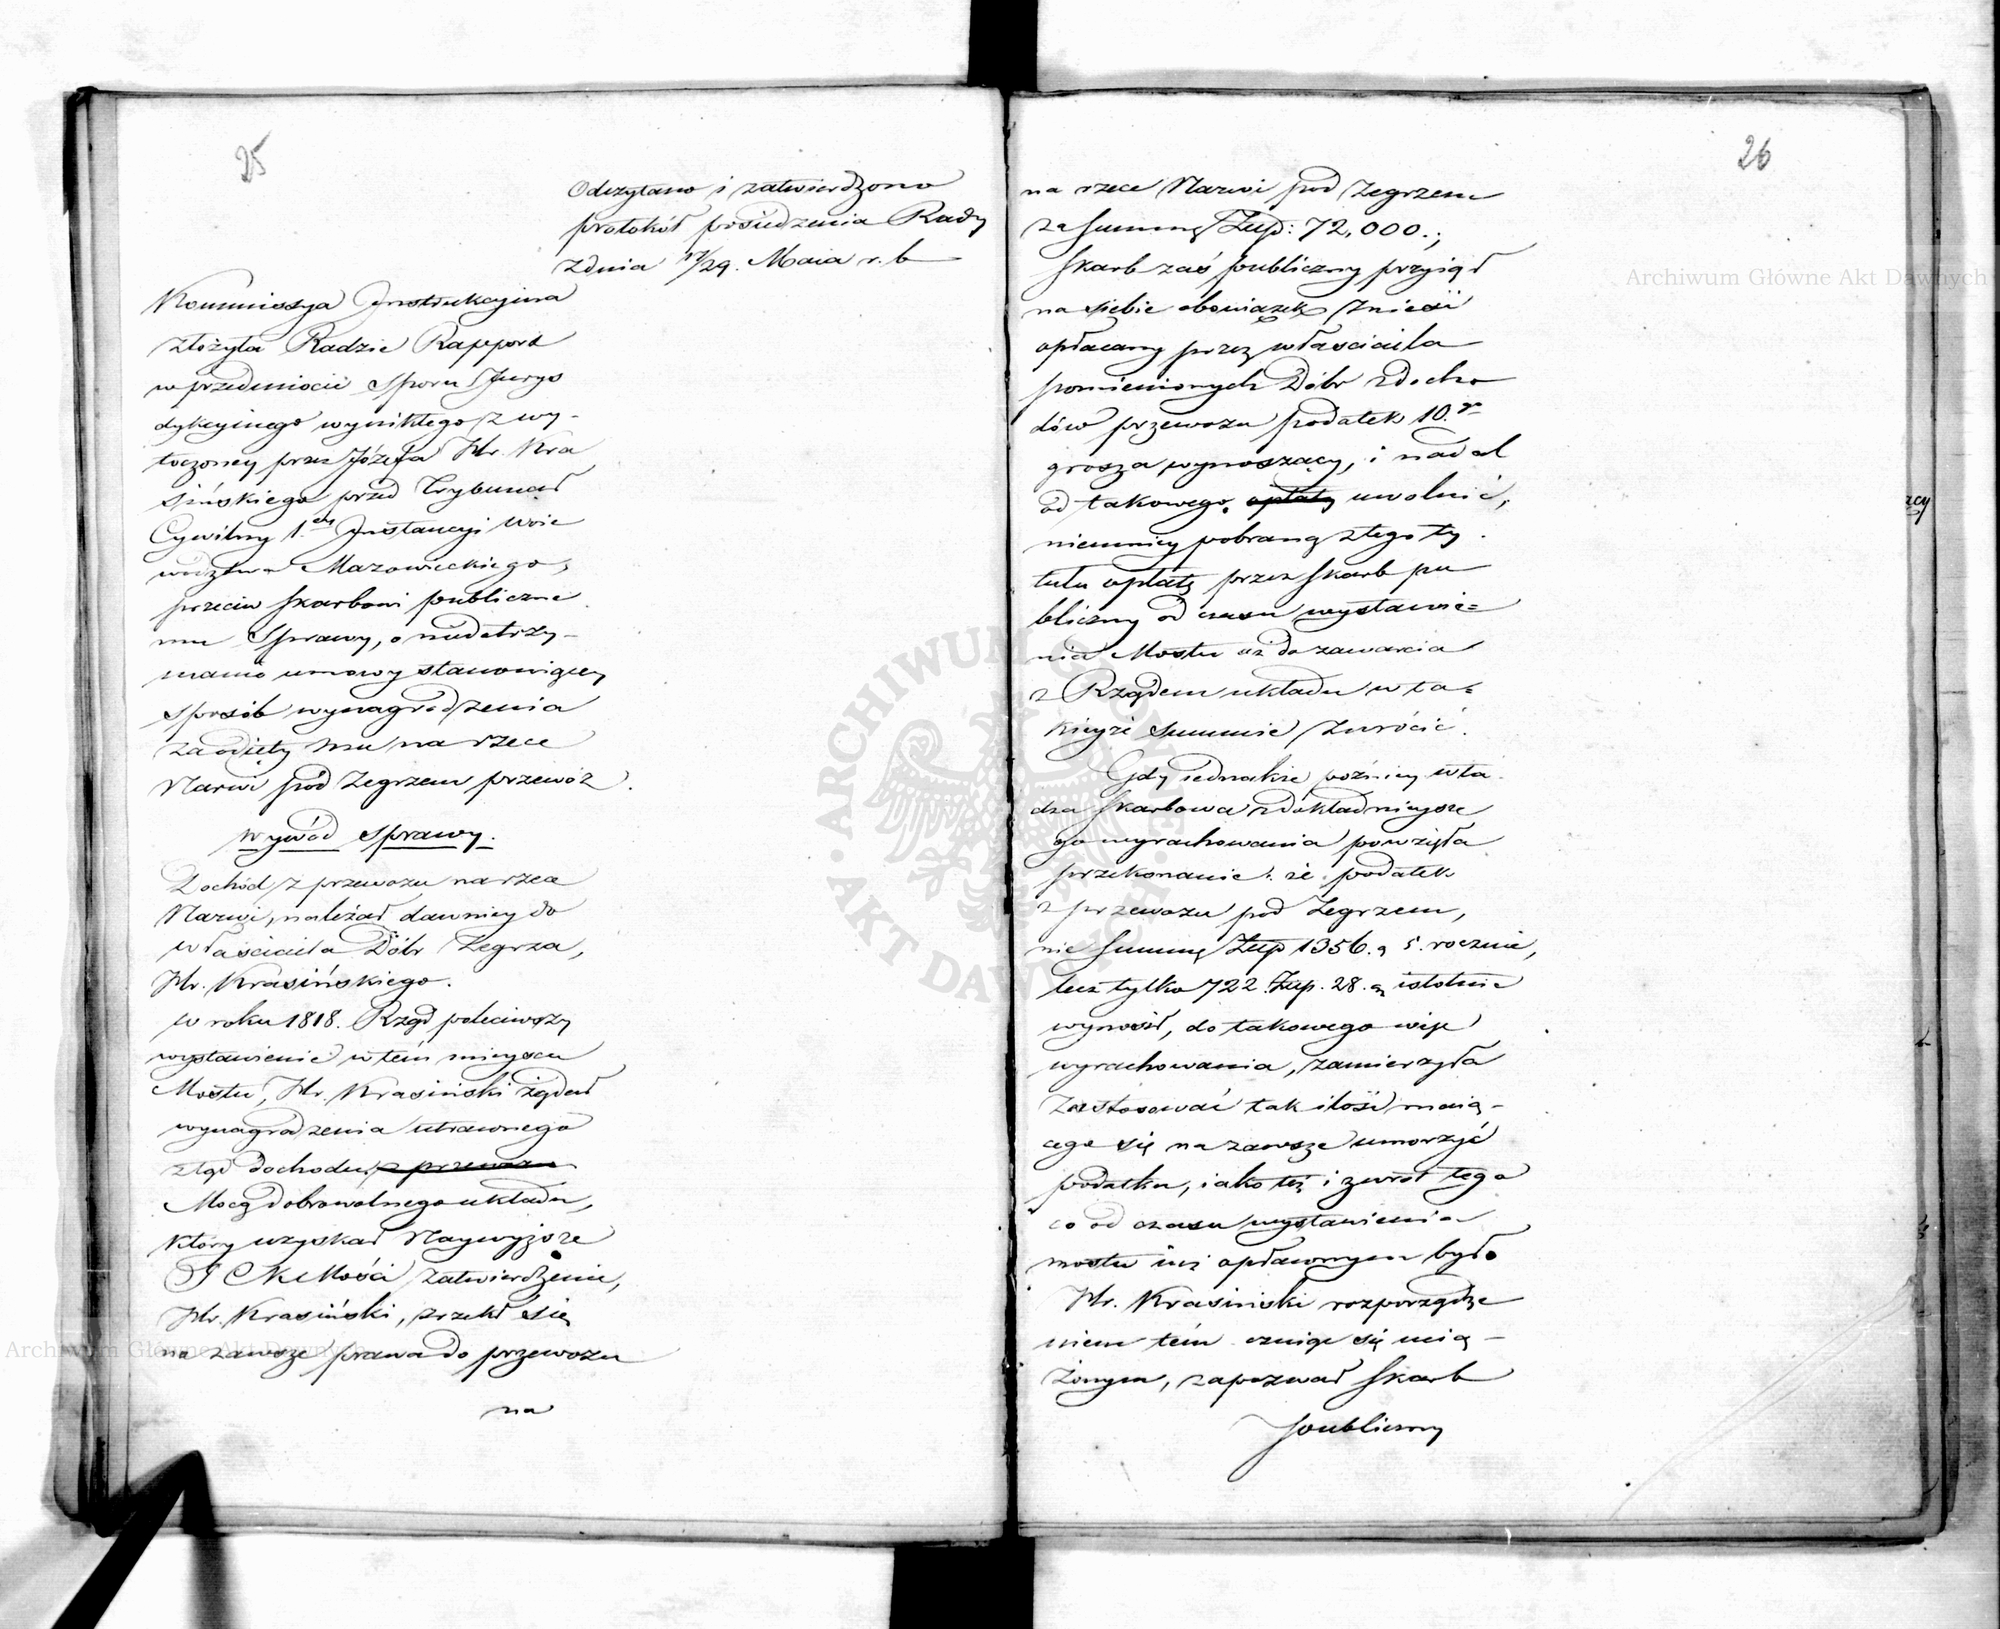 25
Odczytano i zatwierdzono
protokół posiedzenia Rady
z dnia 17/29. Maia r. b
Kommissya Instrukcyina
złożyła Radzie Rapport
w przedmiocie sporu Jurys
dykcyinego wynikłego z wy-
toczoney przez Józefa Hr. Kra
sińskiego przed Trybunał
Cywilny 1.ey Instancyi Woie
wództwa Mazowieckiego,
przeciw Skarbowi publiczne
mu Sprawy, o niedotrzy-
manie umowy stanowiącey
sposób wynagrodzenia
za odięty mu na rzece
Narwi pod Zegrzem przewóz.
Wywód Sprawy.
Dochód z przewozu na rzece
Narwi, należał dawniey do
właściciela Dóbr Zegrza,
Hr. Krasińskiego.
W roku 1818. Rząd poleciwszy
wystawienie w tém mieyscu
Mostu, Hr. Krasiński żądał
wynagrodzenia utraconego
ztąd dochodu, z przewozu
Mocą dobrowolnego układu,
który uzyskał Naywyższe
J C K Mości zatwierdzenie,
Hr. Krasiński, zrzekł się
na zawsze prawa do przewozu
na
26
na rzece Narwi pod Zegrzem
za Summę Złp: 72,000.;
Skarb zaś publiczny przyiął
na siebie obowiązek znieść
opłacany przez właściciela
pomienionych Dóbr z docho
dów przewozu podatek 10.go
grosza wynoszący, i nadal
od takowego opłaty uwolnić,
niemniey pobraną z tego ty
tułu opłatę przez Skarb pu
bliczny od czasu wystawie=
nia Mostu aż do zawarcia
z Rządem układu w ta=
kieyże summie zwrócić.
Gdy iednakże późniey wła
dza Skarbowa z dokładnieysze
go wyrachowania powzięła
przekonanie: że podatek
z przewozu pod Zegrzem,
nie Summę Złp 1356. g 5. rocznie,
lecz tylko 722. Złp. 28. g istotnie
wynosił, do takowego więc
wyrachowania, zamierzyła
zastosować tak ilość maią-
cego się na zawsze umorzyć
podatku, iako też i zwrot tego
co od czasu wystawienia
mostu iuż opłaconym było
Hr. Krasiński rozporządze
niem tém czuiąc się ucią-
żonym, zapozwał Skarb
publiczny
Archiwum Główne Akt Dawnych
Archiwum Główne Akt Dawnych
ARCHIWUM GŁÓWNE AKT DAWNYCH